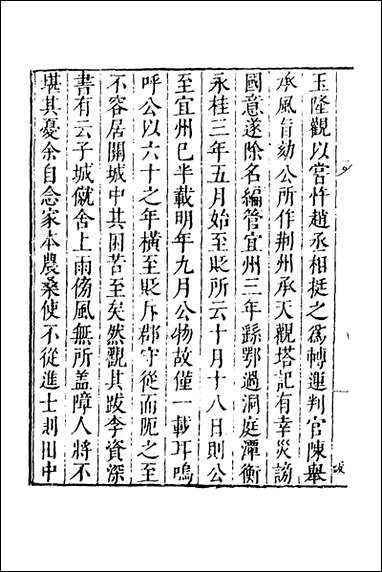 玉隆觀以嘗忤趙丞相挺之爲轉運判官陳舉
承風旨劾公所作荆州承天觀塔記有幸災謗
國意遂除名編管宜州三年繇鄂過洞庭潭衡
永桂三年五月始至貶所云十月十八日則公
至宜州已半載明年九月公物故僅一載耳嗚
呼公以六十之年橫至貶斥郡守從而阨之至
不容居關城中其困苦至矣然觀其跋李資深
書有云子城僦舍上雨傍風無所盖障人將不
堪其憂余自念家本農桑使不從進士則田中